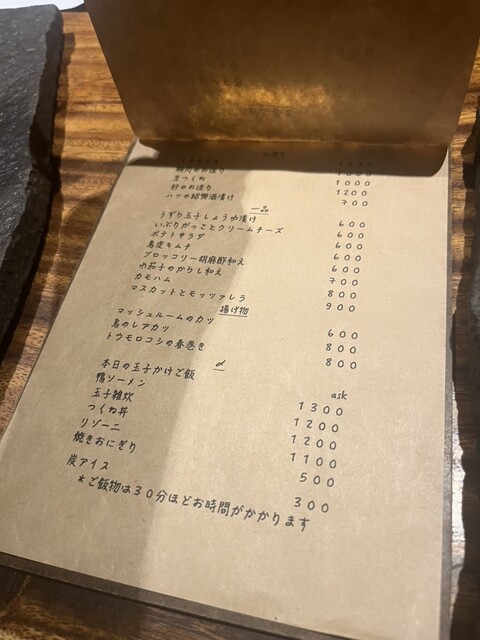 生つくね 1000
砂のお造り 1200
ハツの紹興酒漬け 700
一品
うずり玉子しょうゆ漬け 600
いぶりがっことクリームチーズ 600
ポテトサラダ 600
鳥皮キムチ 600
ブロッコリー胡麻酢和え 600
水茄子のからし和え 700
カモハム 800
マスカットとモッツァレラ 900
揚げ物
マッシュルームのカツ 600
鳥のレアカツ 800
トウモロコシの春巻き 800
〆
本日の玉子かけご飯 ask
鴨ソーメン 1300
玉子雑炊 1200
つくね丼 1200
リゾーニ 1100
焼きおにぎり 500
炭アイス 300
*ご飯物は30分ほどお時間がかかります